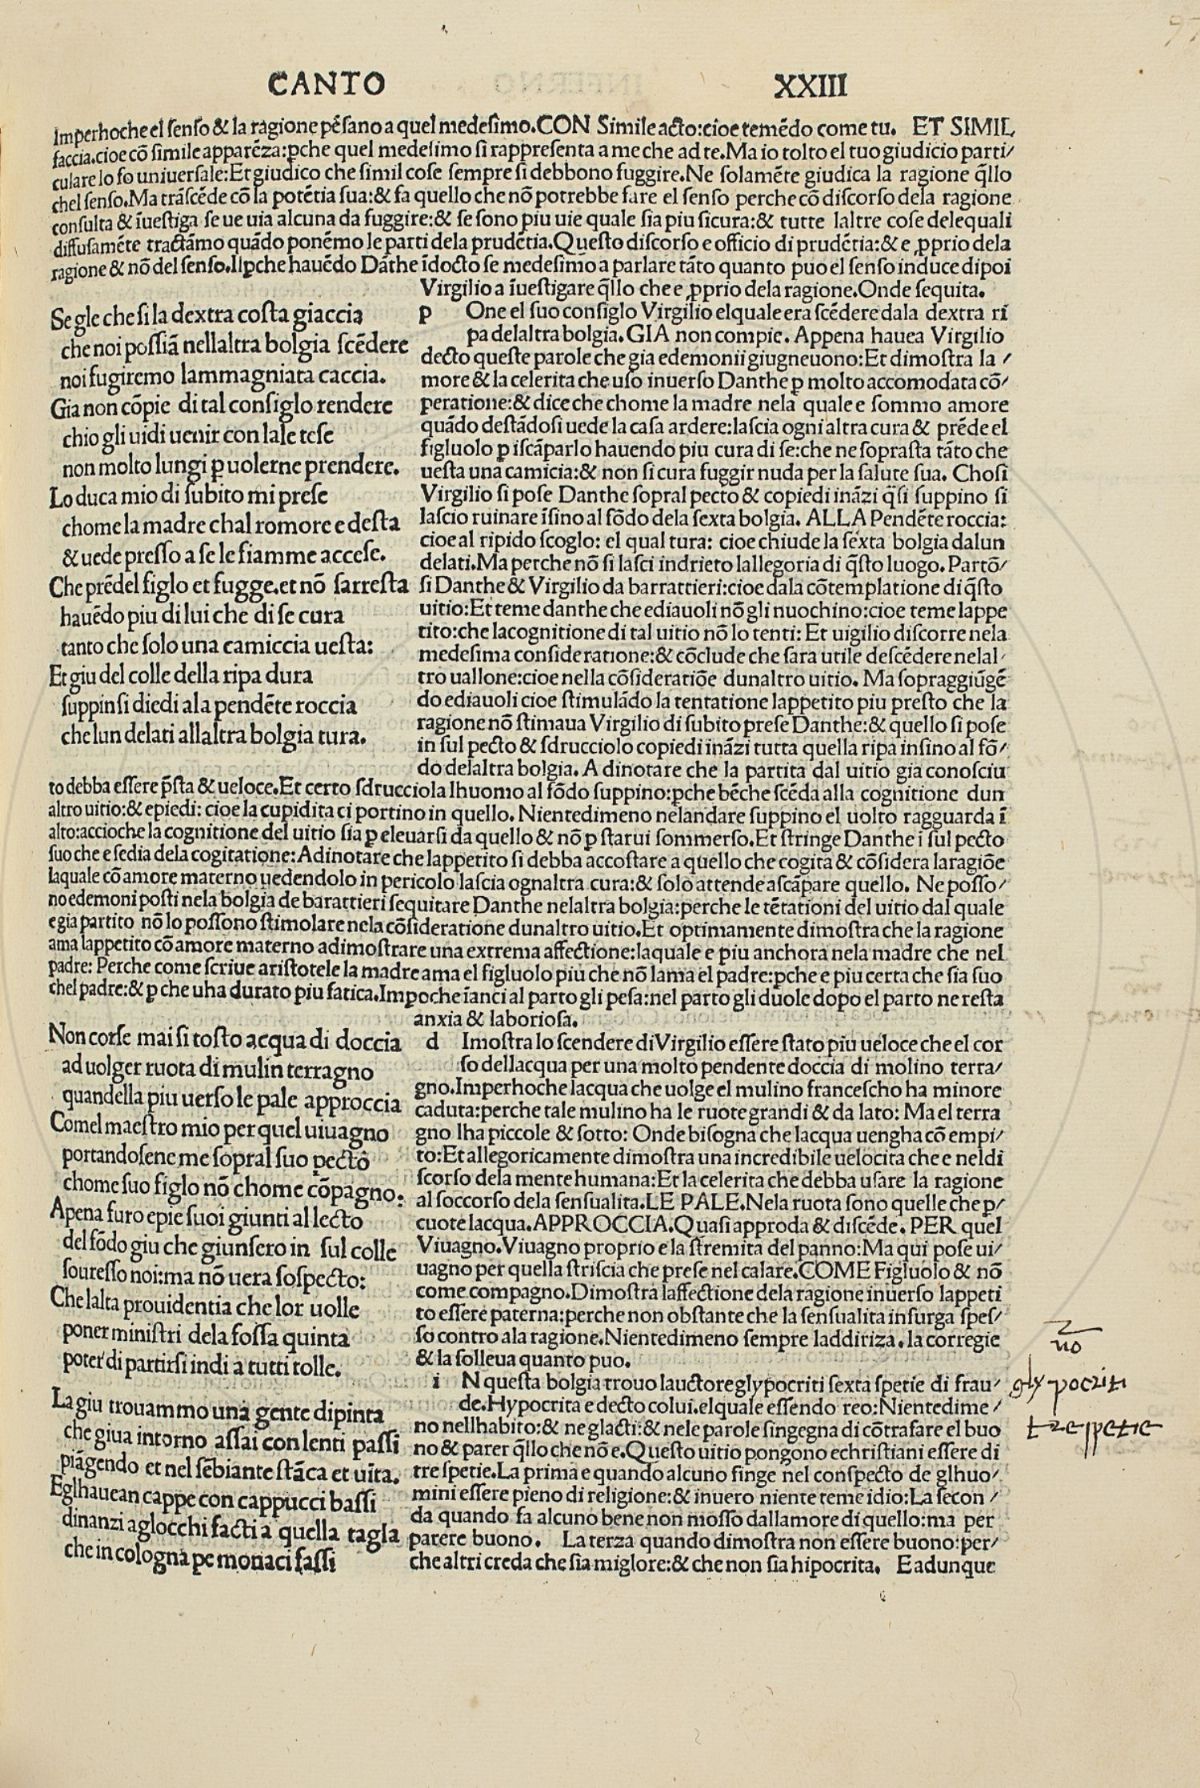 CANTO XXIII
Imperhoche el senso & la ragione pēsano a quel medesimo.CON Simile acto:cioe temēdo come tu. ET SIMIL
faccia.cioe cō simile apparēza:pche quel medesimo si rappresenta a me che ad te.Ma io tolto el tuo giudicio parti/
culare lo fo universale:Et giudico che simil cose sempre si debbono fuggire.Ne solamēte giudica la ragione q̄llo
chel senso.Ma trāscēde cō la potētia sua:& fa quello che nō potrebbe fare el senso perche cō discorso dela ragione
consulta & īuestiga se ue uia alcuna da fuggire:& se sono piu uie quale sia piu sicura:& tutte laltre cose delequali
diffusamēte tractāmo quādo ponēmo le parti dela prudētia.Questo discorso e officio di prudētia:& e ꝓprio dela
ragione & nō del senso.Ilpche hauēdo Dāthe īdocto se medesimo a parlare tāto quanto puo el senso induce dipoi
Virgilio a īuestigare q̄llo che e ꝓprio dela ragione.Onde sequita.
Se gle che si la dextra costa giaccia
che noi possiā nellaltra bolgia scēdere
noi fugiremo lammagniata caccia.
Gia non cōpie di tal consiglo rendere
chio gli uidi uenir con lale tese
non molto lungi ꝑ uolerne prendere.
Lo duca mio di subito mi prese
chome la madre chal romore e desta
& uede presso a se le fiamme accese.
Che prēdel figlo et fugge.et nō sarresta
hauēdo piu di lui che di se cura
tanto che solo una camiccia uesta:
Et giu del colle della ripa dura
suppin si diedi ala pendēte roccia
che lun delati allaltra bolgia tura.
p One el suo consiglo Virgilio elquale era scēdere dala dextra ri
pa delaltra bolgia.GIA non compie. Appena hauea Virgilio
decto queste parole che gia edemonii giugneuono:Et dimostra la /
more & la celerita che uso inuerso Danthe ꝑ molto accomodata cō/
peratione:& dice che chome la madre nela quale e sommo amore
quādo destādosi uede la casa ardere:lascia ogni altra cura & prēde el
figluolo ꝑ iscāparlo hauendo piu cura di se:che ne soprasta tāto che
uesta una camicia:& non si cura fuggir nuda per la salute sua. Chosi
Virgilio si pose Danthe sopral pecto & copiedi ināzi q̄si suppino si
lascio ruinare īsino al fōdo dela sexta bolgia. ALLA Pendēte roccia:
cioe al ripido scoglo: el qual tura: cioe chiude la sexta bolgia dalun
delati.Ma perche nō si lasci indrieto lallegoria di q̄sto luogo. Partō/
si Danthe & Virgilio da barrattieri:cioe dala cōtemplatione di q̄sto
uitio:Et teme danthe che ediauoli nō gli nuochino:cioe teme lappe
tito:che lacognitione di tal uitio nō lo tenti: Et uigilio discorre nela
medesima consideratione:& cōclude che sara utile descēdere nelal/
tro uallone:cioe nella cōsideratiōe dunaltro uitio. Ma sopraggiūgē
do ediauoli cioe stimulādo la tentatione lappetito piu presto che la
ragione nō stimaua Virgilio di subito prese Danthe:& quello si pose
in sul pecto & sdrucciolo copiedi ināzi tutta quella ripa insino al fō/
do delaltra bolgia. A dinotare che la partita dal uitio gia conosciu
to debba essere p̄sta & ueloce.Et certo sdrucciola lhuomo al fōdo suppino:pche bēche scēda alla cognitione dun
altro uitio:& epiedi: cioe la cupidita ci portino in quello. Nientedimeno nelandare suppino el uolto ragguarda ī
alto:accioche la cognitione del uitio sia ꝑ eleuarsi da quello & nō ꝑ starui sommerso.Et stringe Danthe i sul pecto
suo che e sedia dela cogitatione:Adinotare che lappetito si debba accostare a quello che cogita & cōsidera laragiōe
laquale cō amore materno uedendolo in pericolo lascia ognaltra cura:& solo attende ascāpare quello. Ne posso/
no edemoni posti nela bolgia de barattieri sequitare Danthe nelaltra bolgia:perche le tētationi del uitio dal quale
e gia partito nō lo possono stimolare nela cōsideratione dunaltro uitio.Et optimamente dimostra che la ragione
ama lappetito cō amore materno adimostrare una extrema affectione:laquale e piu anchora nela madre che nel
padre: Perche come scriue aristotele la madre ama el figluolo piu che nō lama el padre:pche e piu certa che sia suo
chel padre:& ꝑ che uha durato piu fatica.Impoche īanci al parto gli pesa:nel parto gli duole dopo el parto ne resta
anxia & laboriosa.
Non corse mai si tosto acqua di doccia
ad uolger ruota di mulin terragno
quandella piu uerso le pale approccia
Comel maestro mio per quel uiuagno
portandosene me sopral suo pecto
chome suo figlo nō chome cōpagno:
Apena furo epie suoi giunti al lecto
del fōdo giu che giunsero in sul colle
souresso noi:ma nō uera sospecto:
Che lalta prouidentia che lor uolle
poner ministri dela fossa quinta
poter di partirsi indi a tutti tolle.
d Imostra lo scendere di Virgilio essere stato piu ueloce che el cor
so dellacqua per una molto pendente doccia di molino terra/
gno.Imperhoche lacqua che uolge el mulino francescho ha minore
caduta:perche tale mulino ha le ruote grandi & da lato: Ma el terra
gno lha piccole & sotto: Onde bisogna che lacqua uengha cō empi/
to:Et allegoricamente dimostra una incredibile uelocita che e nel di
scorso dela mente humana:Et la celerita che debba usare la ragione
al soccorso dela sensualita.LE PALE.Nela ruota sono quelle che ꝑ/
cuote lacqua.APPROCCIA.Quasi approda & discēde. PER quel
Viuagno.Viuagno proprio e la stremita del panno:Ma qui pose ui/
uagno per quella striscia che prese nel calare.COME Figluolo & nō
come compagno.Dimostra laffectione dela ragione inuerso lappeti
to essere paterna:perche non obstante che la sensualita insurga spes/
so contro ala ragione.Nientedimeno sempre laddiriza.la corregie
& la solleua quanto puo.
La giu trouammo una gente dipinta
che giua intorno assai con lenti passi
piāgendo et nel sēbiante stāca et uīta.
Eglhauean cappe con cappucci bassi
dinanzi aglocchi facti a quella tagla
che in cologna pe monaci fassi
i N questa bolgia trouo lauctore glypocriti sexta spetie di frau/
de.Hypocrita e decto colui.elquale essendo reo:Nientedime /
no nellhabito:& ne glacti:& nele parole singegna di cōtrafare el buo
no & parer q̄llo che nō e.Questo uitio pongono echristiani essere di
tre spetie.La prima e quando alcuno finge nel conspecto de glhuo/
mini essere pieno di religione:& inuero niente teme idio:La secon /
da quando fa alcuno bene non mosso dallamore di quello:ma per
parere buono. La terza quando dimostra non essere buono:per/
che altri creda che sia miglore:& che non sia hipocrita. E adunque
nō
glypocriti
tre spetie